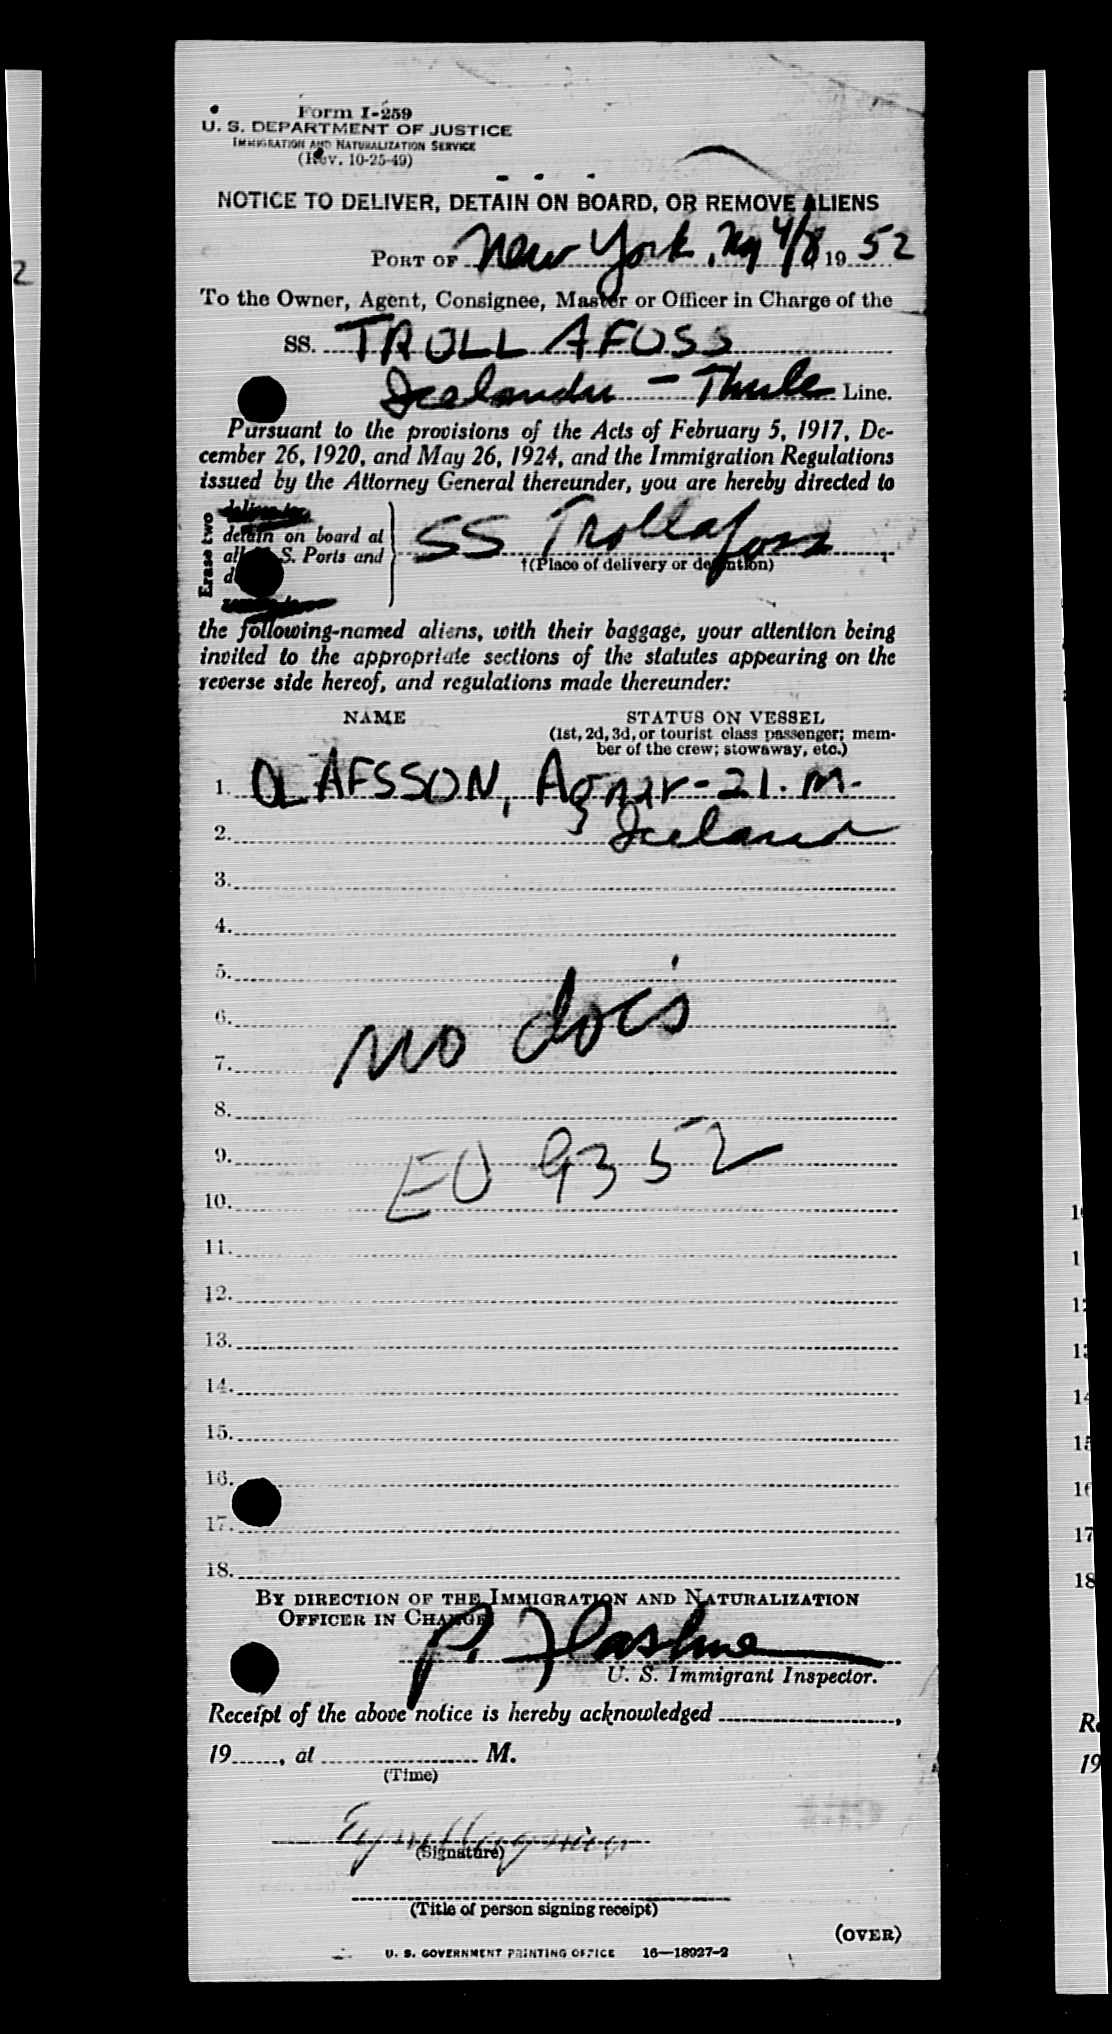 2
Form I-259
U. S. DEPARTMENT OF JUSTICE
IMMIGRATION AND NATURALIZATION SERVICE
(Rev. 10-25-49)
NOTICE TO DELIVER, DETAIN ON BOARD, OR REMOVE ALIENS
PORT OF New York, Ny 4/8 1952
To the Owner, Agent, Consignee, Master or Officer in Charge of the
SS. TROLLAFOSS
Icelander - Thule Line.
Pursuant to the provisions of the Acts of February 5, 1917, De-
cember 26, 1920, and May 26, 1924, and the Immigration Regulations
issued by the Attorney General thereunder, you are hereby directed to
Erase two
deliver to
detain on board at
all U. S. Ports and
SS Trollafoss
†(Place of delivery or detention)
the following-named aliens, with their baggage, your attention being
invited to the appropriate sections of the statutes appearing on the
reverse side hereof, and regulations made thereunder:
NAME STATUS ON VESSEL
(1st, 2d, 3d, or tourist class passenger; mem-
ber of the crew; stowaway, etc.)
1. OLAFSSON, Agnar - 21. M.
2. Iceland
3.
4.
5.
6.
no docs
7.
8.
9.
EO 9352
10.
11.
12.
13.
14.
15.
16.
17.
18.
BY DIRECTION OF THE IMMIGRATION AND NATURALIZATION
OFFICER IN CHARGE
P.
U. S. Immigrant Inspector.
Receipt of the above notice is hereby acknowledged ,
19 , at M.
(Time)
(Signature)
(Title of person signing receipt)
(OVER)
U. S. GOVERNMENT PRINTING OFFICE 16—18027-2